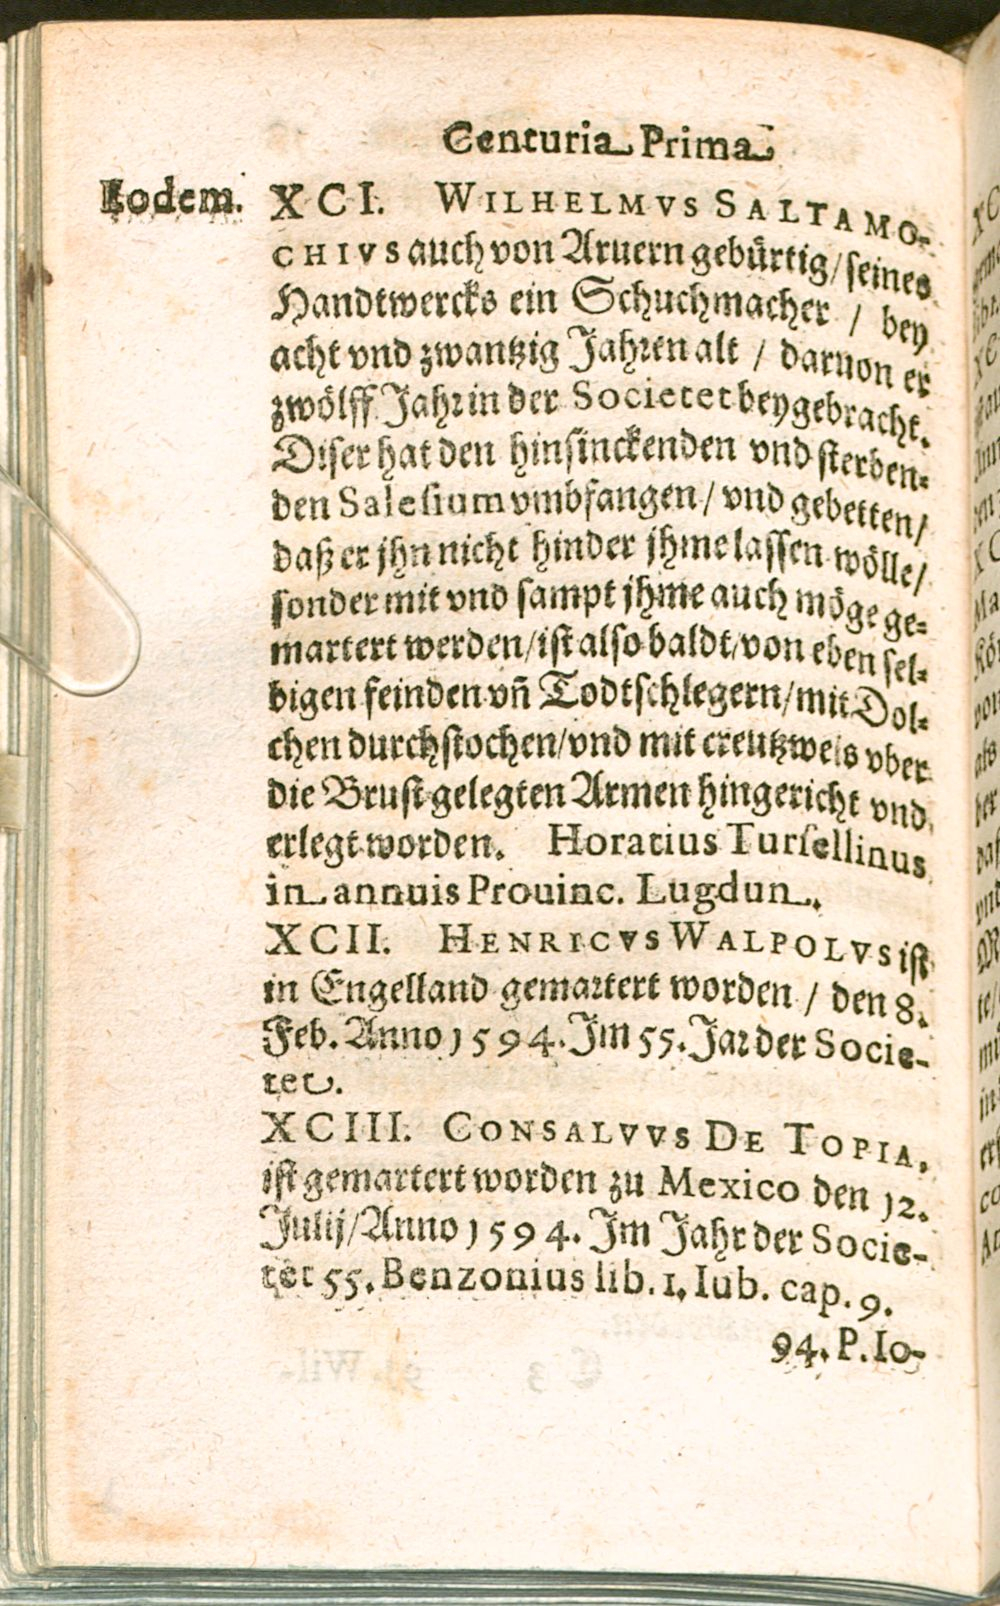 Centuria Prima
Eodem. XCI. WILHELMVS SALTAMO-
CHIVS auch von Aruern gebürtig/ seines
Handtwercks ein Schuchmacher / bey
acht vnd zwantzig Jahren alt / daruon er
zwölff Jahr in der Societet beygebracht.
Diser hat den hinsinckenden vnd sterben-
den Salesium vmbfangen/ vnd gebetten/
daß er jhn nicht hinder jhme lassen wölle/
sonder mit vnd sampt jhme auch möge ge-
martert werden/ ist also baldt/ von eben sel-
bigen feinden vñ Todtschlegern/ mit Dol-
chen durchstochen/ vnd mit creutzweis vber
die Brust gelegten Armen hingericht vnd
erlegt worden. Horatius Tursellinus
in annuis Prouinc. Lugdun.
XCII. HENRICVS WALPOLVS ist
in Engelland gemartert worden / den 8.
Feb. Anno 1594. Im 55. Jar der Socie-
tet.
XCIII. CONSALVVS DE TOPIA,
ist gemartert worden zu Mexico den 12.
Julij/ Anno 1594. Im Jahr der Socie-
tet 55. Benzonius lib. 1. Iub. cap. 9.
94. P. Io-